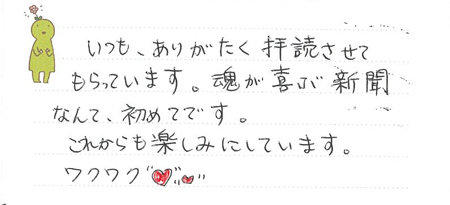 いつも、ありがたく拝読させて
もらっています。魂が喜ぶ新聞
なんて、初めてです。
これからも楽しみにしています。
ワクワク